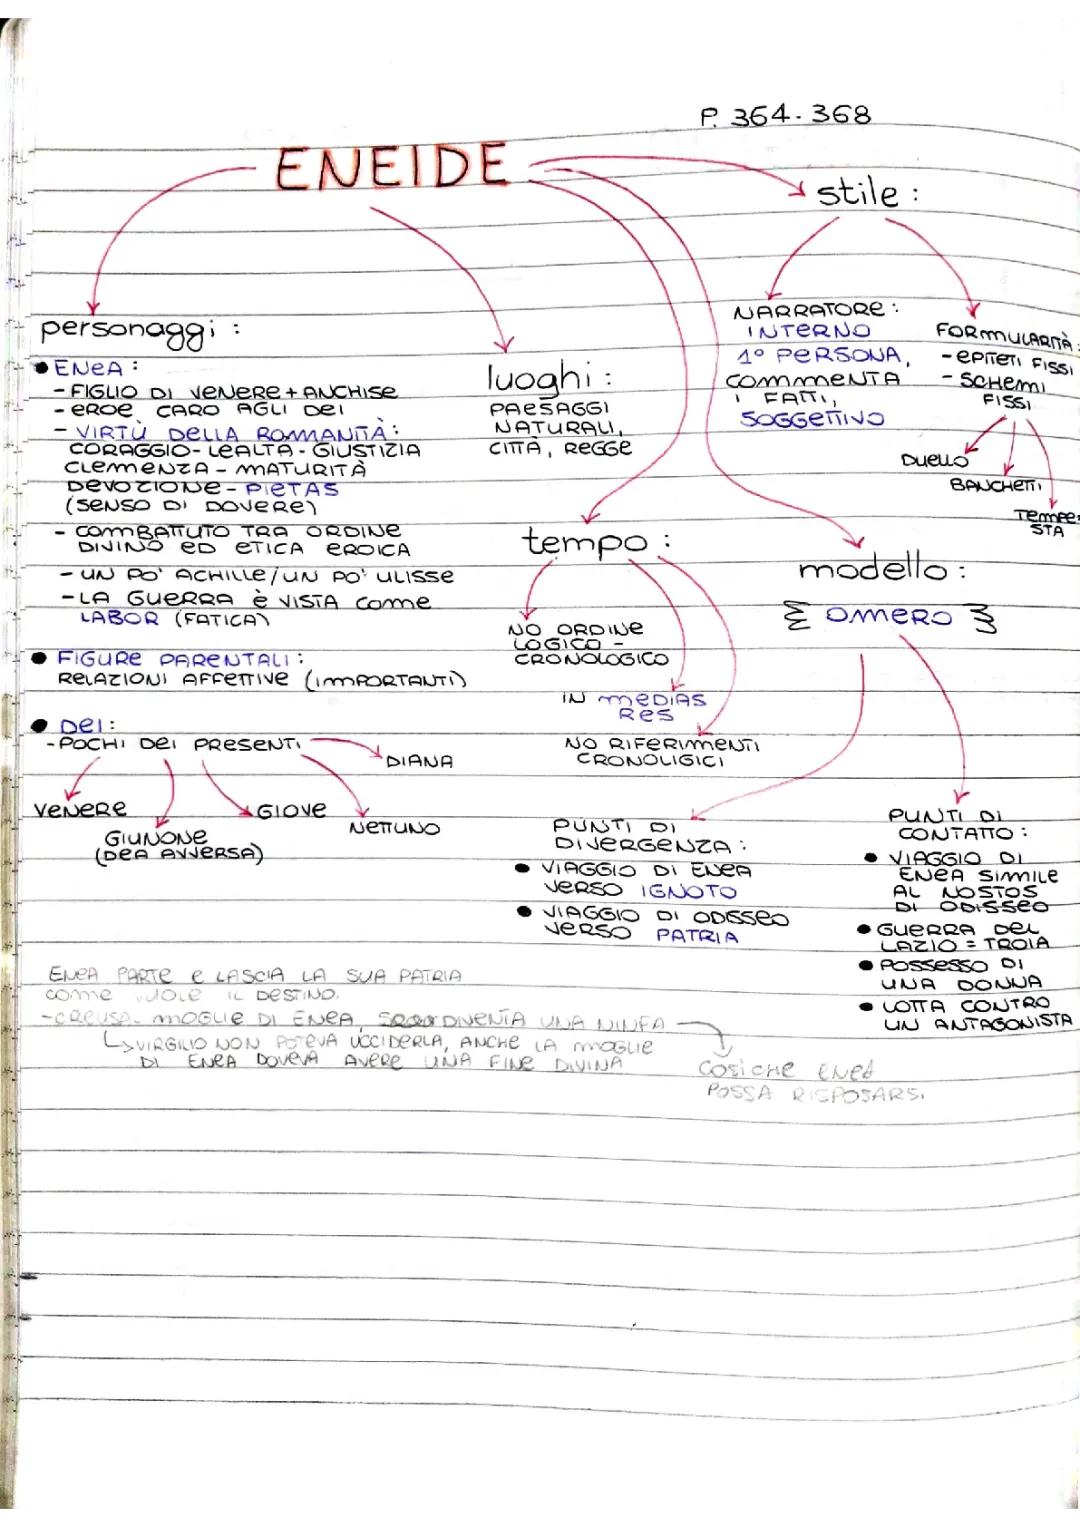 P. 364-368
ENEIDE
stile:
personaggi:
• ENEA:
- FIGLIO DI VENERE + ANCHISE
- EROE CARO AGLI DEI
- VIRTÙ DELLA ROMANITÀ:
CORAGGIO - LEALTÀ - GIUSTIZIA
CLEMENZA - MATURITÀ
DEVOZIONE - PIETAS
(SENSO DI DOVERE)
- COMBATTUTO TRA ORDINE
DIVINO ED ETICA EROICA
- UN PO' ACHILLE/UN PO' ULISSE
- LA GUERRA È VISTA COME
LABOR (FATICA)
• FIGURE PARENTALI:
RELAZIONI AFFETTIVE (IMPORTANTI)
• DEI:
- POCHI DEI PRESENTI
DIANA
VENERE
GIUNONE
(DEA AVVERSA)
GIOVE
NETTUNO
luoghi:
PAESAGGI
NATURALI,
CITTÀ, REGGE
NARRATORE:
INTERNO
1° PERSONA,
COMMENTA
I FATTI,
SOGGETTIVO
FORMULARITÀ:
- EPITETI FISSI
- SCHEMI
FISSI
DUELLO
BANCHETTI
TEMPE-
STA
tempo:
NO ORDINE
LOGICO -
CRONOLOGICO
IN MEDIAS
RES
NO RIFERIMENTI
CRONOLIGICI
modello:
OMERO
PUNTI DI
DIVERGENZA:
• VIAGGIO DI ENEA
VERSO IGNOTO
• VIAGGIO DI ODISSEO
VERSO PATRIA
PUNTI DI
CONTATTO:
• VIAGGIO DI
ENEA SIMMILE
AL NOSTOS
DI ODISSEO
• GUERRA DEL
LAZIO = TROIA
• POSSESSO DI
UNA DONNA
• LOTTA CONTRO
UN ANTAGONISTA
ENEA PARTE E LASCIA LA SUA PATRIA
COME VUOLE IL DESTINO.
- CREUSA - MOGLIE DI ENEA DIVENTA UNA NINFA
VIRGILIO NON POTEVA UCCIDERLA, ANCHE LA MOGLIE
DI ENEA DOVEVA AVERE UNA FINE DIVINA
COSÌ CHE ENEA
POSSA RISPOSARSI